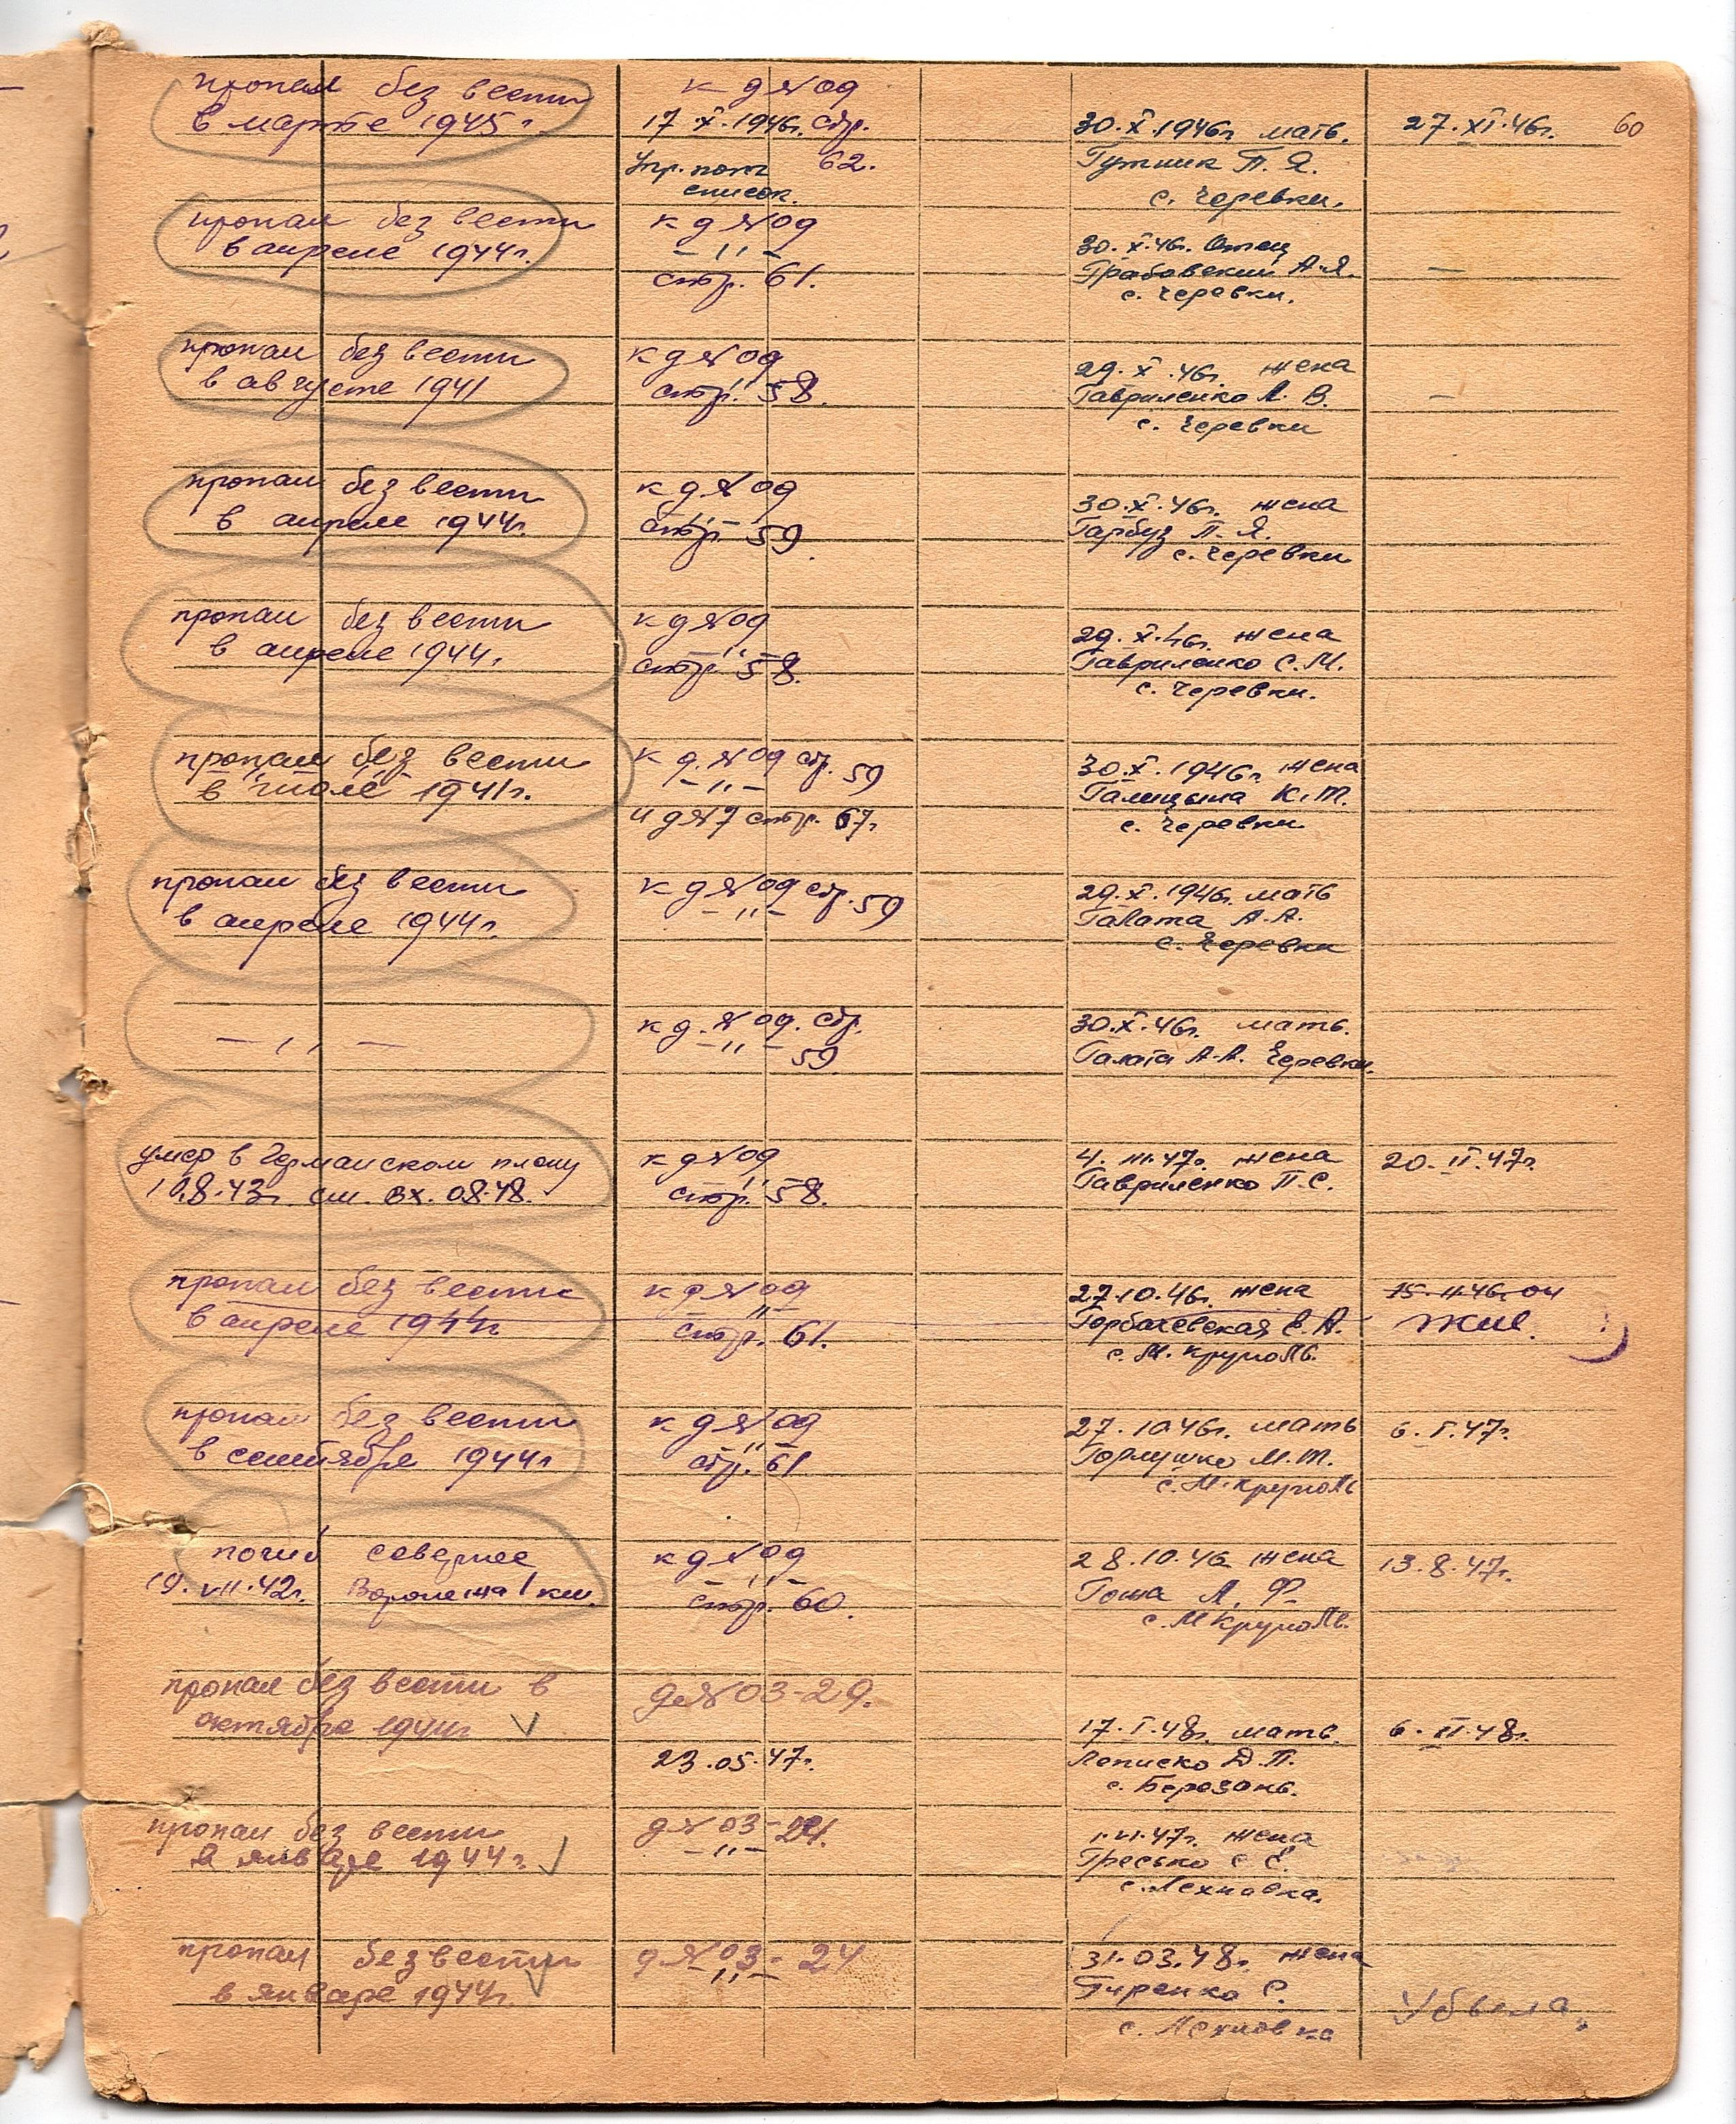 пропал без вести
в марте 1945 г.
к д №09
17.X.1946г. стр.
62.
Упр. пот.
список.
30.X.1946г мать.
Гутник П. Я.
с. Черевки.
27.XI.46г.
60
пропал без вести
в апреле 1944г.
к д №09
—,,—
стр. 61.
30.X.46г. Отец
Грабовский А.Я.
с. Черевки.
—
пропал без вести
в августе 1941
к д №09
стр. 58.
29.X.46г. жена
Гавриленко А. В.
с. Черевки
—
пропал без вести
в апреле 1944г.
к д №09
—,,—
стр. 59.
30.X.46г. жена
Гарбуз П. Я.
с. Черевки
пропал без вести
в апреле 1944г.
к д №09
—,,—
стр. 58.
29.X.46г. жена
Гавриленко С.М.
с. Черевки.
пропал без вести
в июле 1941г.
к д. №09 стр. 59
—,,—
и д №7 стр. 67г.
30.X.1946г жена
Галицына К.Т.
с. Черевки
пропал без вести
в апреле 1944г.
к д №09 стр. 59
—,,—
29.X.1946г. мать
Галата А.А.
с. Черевки
—,,—
к д. №09. стр.
—,,— 59
30.X.46г. мать.
Галата А.А. Черевки.
умер в Германском плену
10.8.43г. см. вх. 08.48.
к д №09
—,,—
стр. 58.
4.III.47г. жена
Гавриленко П.С.
20.II.47г.
пропал без вести
в апреле 1944г
к д №09
—,,—
стр. 61.
27.10.46г. жена
Горбачевская Е.А.
с. М. Круполь.
15.11.46г. он
жив.
пропал без вести
в сентябре 1944г
к д №09
—,,—
стр. 61
27.10.46г. мать
Горлушко М.Т.
с. М. Круполь
6.I.47г.
погиб севернее
19.VII.42г. Воронежа 1 км.
к д №09
—,,—
стр. 60.
28.10.46 жена
Гоша А. Ф.
с. М Круполь.
13.8.47г.
пропал без вести в
октябре 1944г. V
д №03-29.
23.05.47г.
17.I.48г. мать.
Леписко Д.П.
с. Березань.
6.II.48г.
пропал без вести
в январе 1944г. V
д №03-24.
—,,—
1.VI.47г. жена
Гресько С Е.
с. Лехновка.
пропал без вести
в январе 1944г. V
д №03-24
—,,—
31.03.48г. жена
Гиренко С.
с. Лехновка
Убыла.